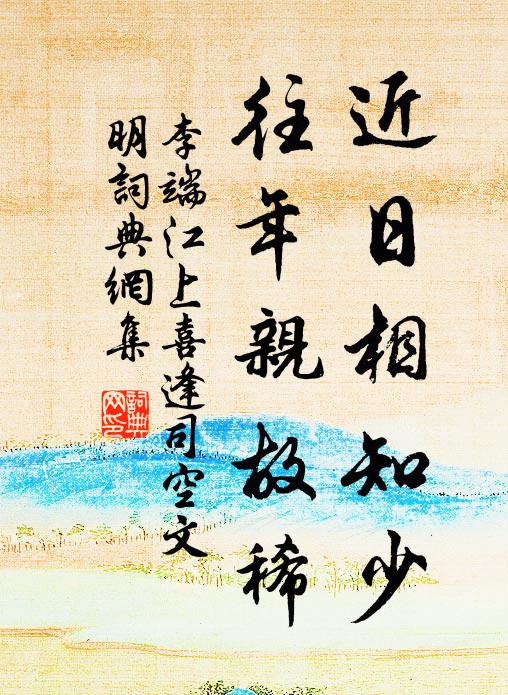 近日相知少
往年親故稀
李端江上喜逢司空文
明詞典網集
詞典
网印